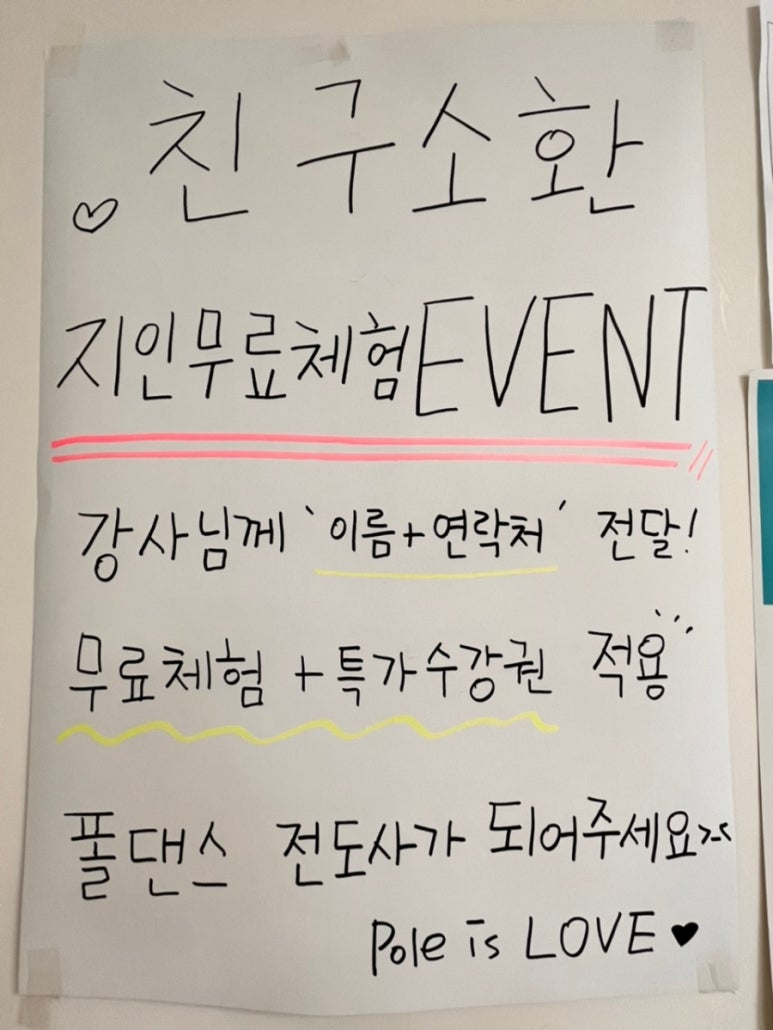 ♡친구소환
지인무료체험EVENT
강사님께 '이름+연락처' 전달!
무료체험 + 특가수강권 적용
폴댄스 전도사가 되어주세요>-<
Pole is LOVE ♥